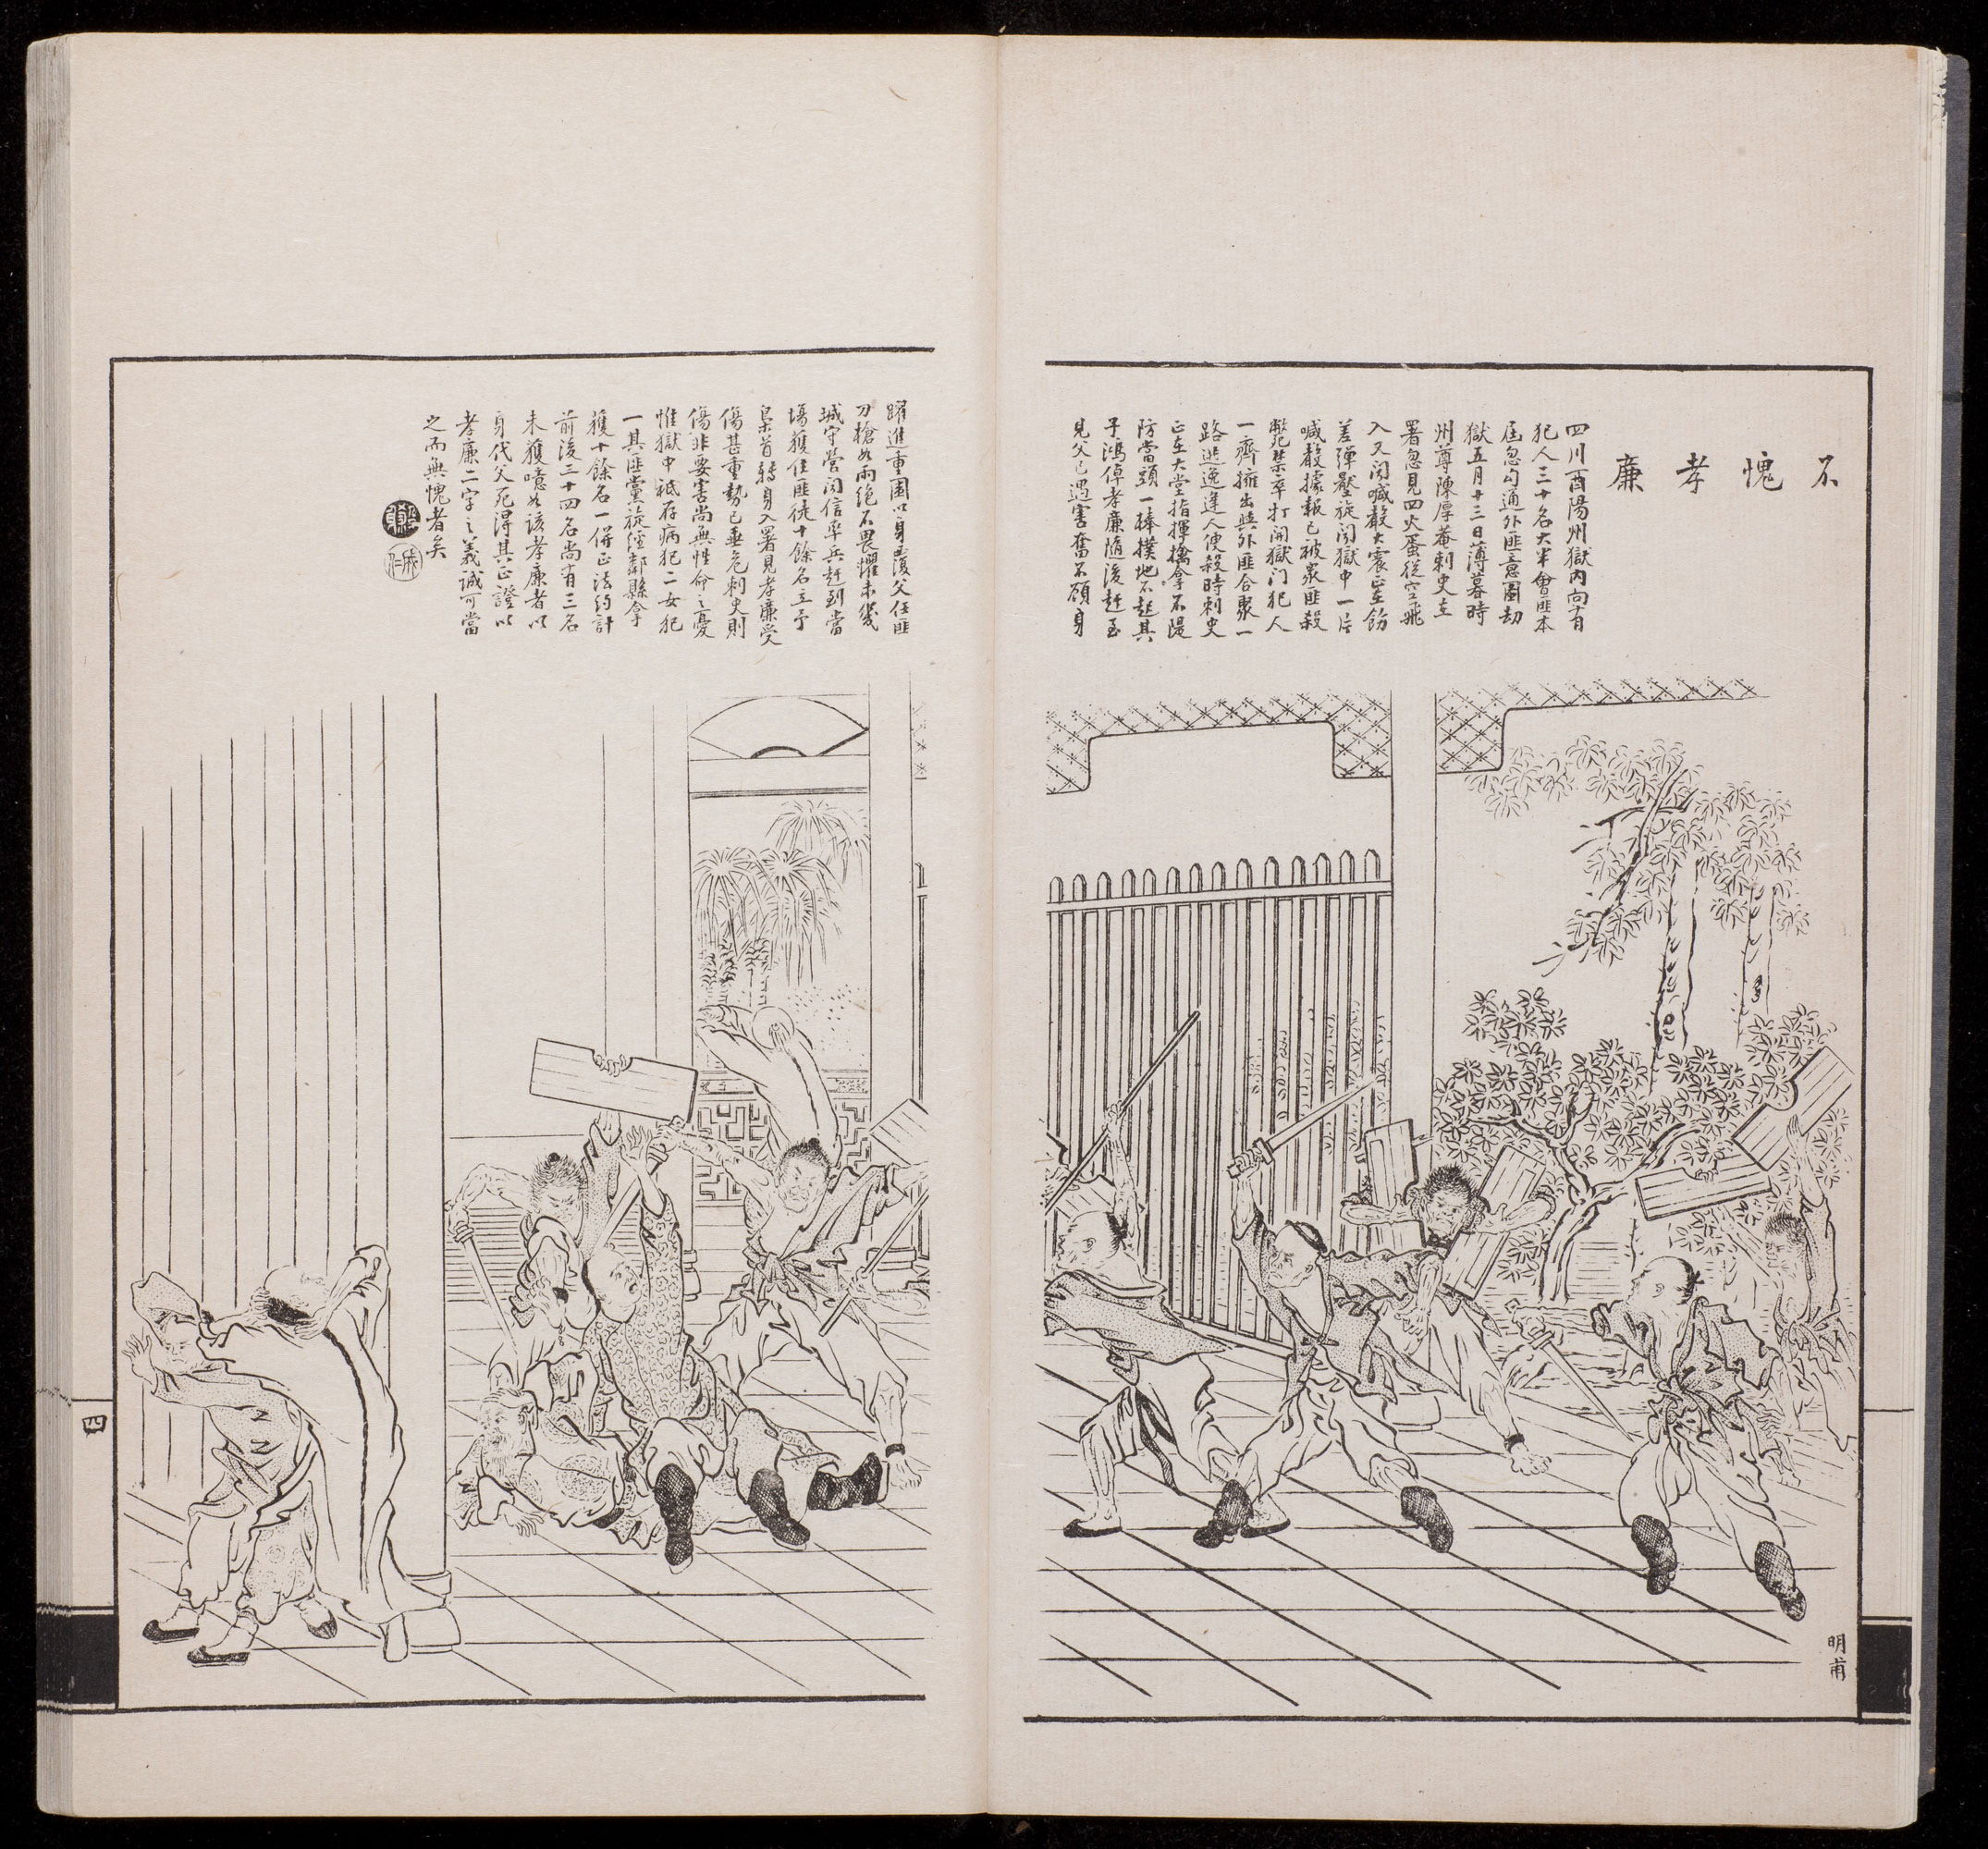 不愧孝廉
四川酉陽州獄內向有
犯人三十名大半會匪本
屆忽勾通外匪意圖劫
獄五月十三日薄暮時
州尊陳厚菴刺史在
署忽見四火蛋從空飛
入又聞喊殺大震正飭
差彈壓旋聞獄中一片
喊殺據報已被眾匪殺
斃禁卒打開獄門犯人
一齊擁出與外匪合聚一
路逃逸逢人便殺時刺史
正在大堂指揮擒拿不隄
防當頭一棒撲地不起其
子鴻倬孝廉隨後趕至
見父已遇害奮不顧身
躍進重圍以身覆父任匪
刀槍如雨絕不畏懼未幾
城守營聞信率兵趕到當
場獲住匪徒十餘名立予
梟首轉身入署見孝廉受
傷甚重勢已垂危刺史則
傷非要害尚無性命之憂
惟獄中祗存病犯二女犯
一其匪黨旋經鄰縣拿
獲十餘名一併正法約計
前後三十四名尚有三名
未獲噫如該孝廉者以
身代父死得其正證以
孝廉二字之義誠可當
之而無愧者矣
明甫
四